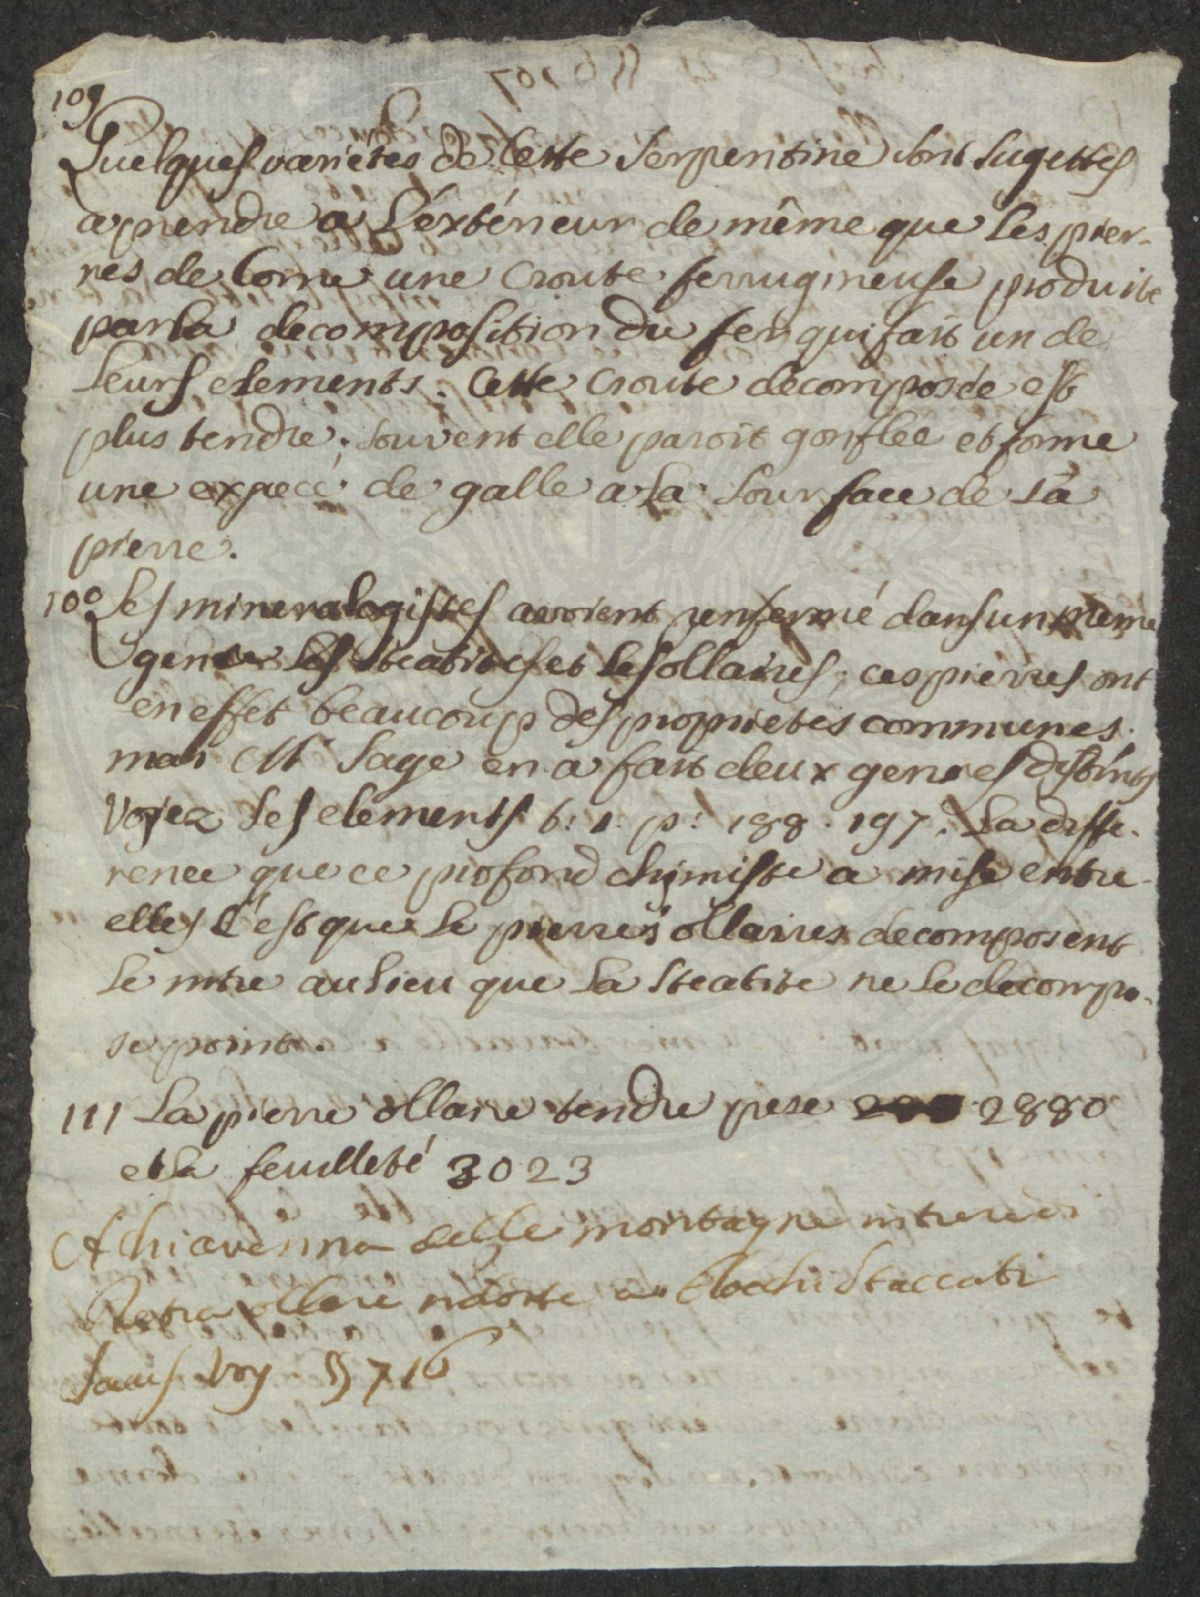 109
Quelques varietes de Cette Serpentine sont sugettes
a prendre a L'éxtérieur de même que Les pier-
res de Corne une Croute ferrugineuse produite
par la decomposition du fer qui fait un de
Leurs elements. Cette Croute decomposée est
plus tendre; souvent elle paroit gonflée et forme
une expece de galle a La Sourface de La
pierre.
100 Les mineralogistes avoient renfermé dans un meme
genre Les steatites et Les ollaires; ces pierres ont
en effet beaucoup des proprietes communes.
mais Mr Sage en a fait deux genres distincts
Voyez Ses elements t: 1. p: 188. 197. La diffe-
rence que ce profond chimiste a mise entre
elles C'est que Le pierres ollaires decomposent
Le nitre au Lieu que La Steatite ne Le decompo-
se point.
111 La pierre ollaire tendre pese 2880
et La feuilleté 3023
A Chiavenna delle montagne
Pietra ollare ridotte a Blochi Staccati
Sauss Voy §§ 716